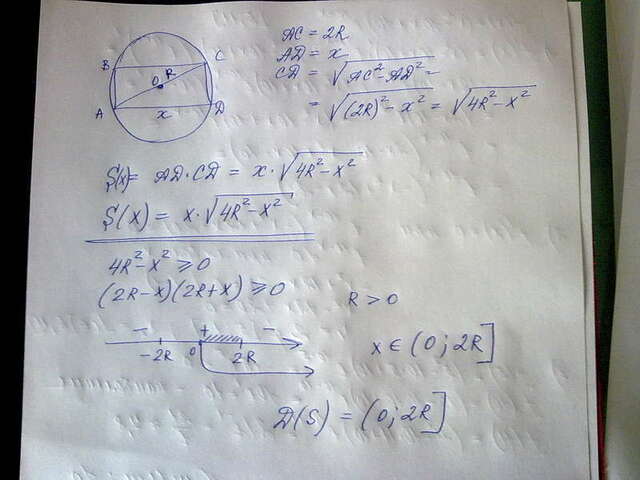 B C
O R
A x D
AC = 2R
AD = x
CD = √AC² - AD² =
= √(2R)² - x² = √4R² - x²
S(x) = AD · CD = x · √4R² - x²
S(x) = x · √4R² - x²
4R² - x² ≥ 0
(2R - x)(2R + x) ≥ 0
R > 0
- + -
-2R 0 2R
x ∈ (0; 2R]
D(S) = (0; 2R]